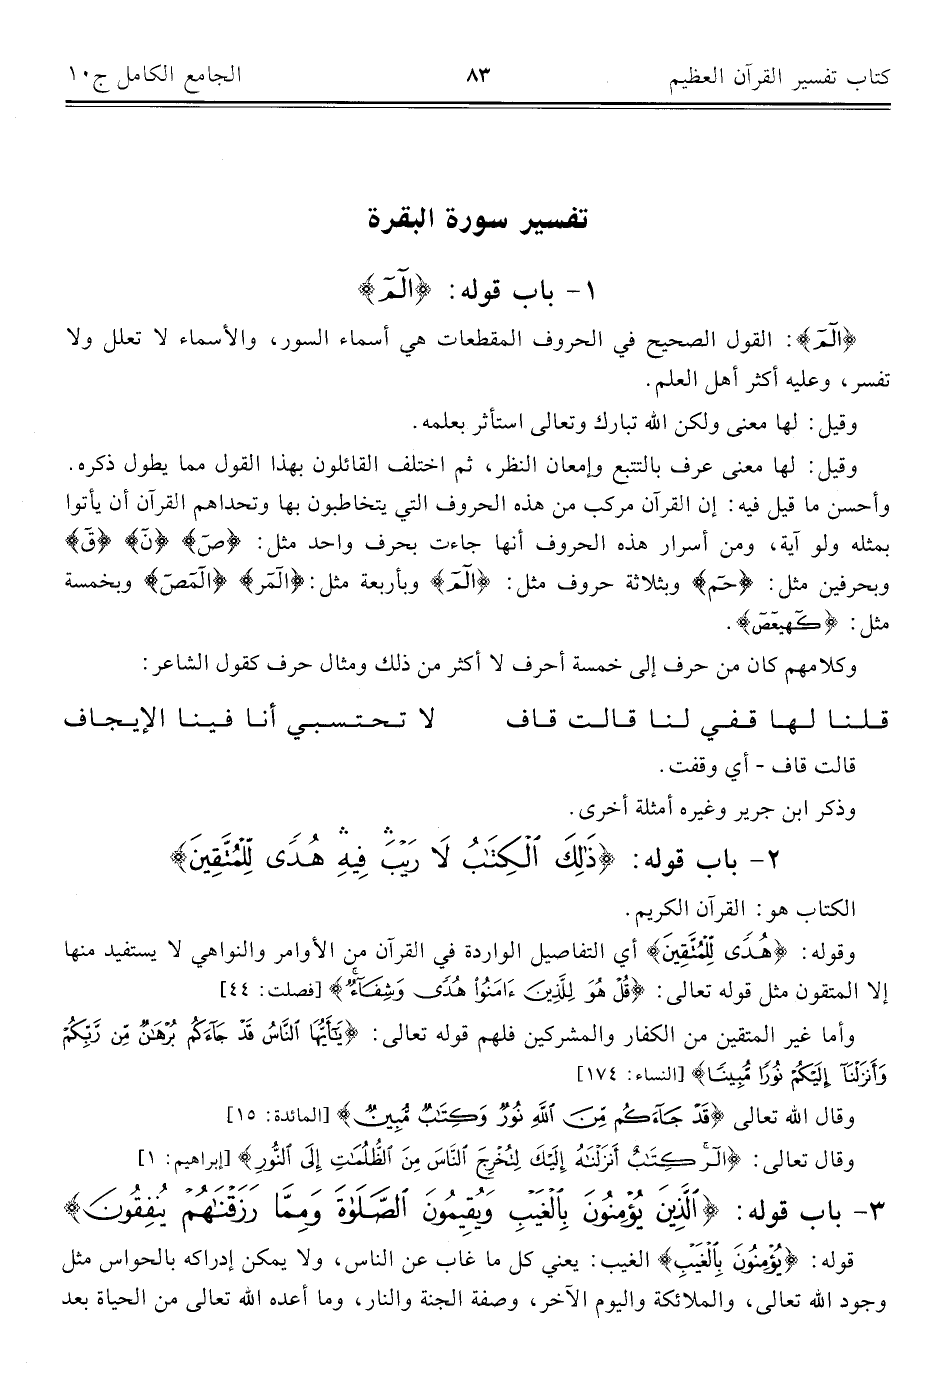 كتاب تفسير القرآن العظيم ٨٣ الجامع الكامل ج١٠
تفسير سورة البقرة
١- باب قوله: ﴿الٓمٓ﴾
﴿الٓمٓ﴾: القول الصحيح في الحروف المقطعات هي أسماء السور، والأسماء لا تعلل ولا
تفسر، وعليه أكثر أهل العلم.
وقيل: لها معنى ولكن الله تبارك وتعالى استأثر بعلمه.
وقيل: لها معنى عرف بالتتبع وإمعان النظر، ثم اختلف القائلون بهذا القول مما يطول ذكره.
وأحسن ما قيل فيه: إن القرآن مركب من هذه الحروف التي يتخاطبون بها وتحداهم القرآن أن يأتوا
بمثله ولو آية، ومن أسرار هذه الحروف أنها جاءت بحرف واحد مثل: ﴿صٓ﴾ ﴿نٓ﴾ ﴿قٓ﴾
وبحرفين مثل: ﴿حمٓ﴾ وبثلاثة حروف مثل: ﴿الٓمٓ﴾ وبأربعة مثل: ﴿الٓمٓر﴾ ﴿الٓمٓصٓ﴾ وبخمسة
مثل: ﴿كٓهيعٓصٓ﴾.
وكلامهم كان من حرف إلى خمسة أحرف لا أكثر من ذلك ومثال حرف كقول الشاعر:
قلنا لها قفي لنا قالت قاف لا تحتسبي أنا فينا الإيجاف
قالت قاف - أي وقفت.
وذكر ابن جرير وغيره أمثلة أخرى.
٢- باب قوله: ﴿ذَٰلِكَ ٱلْكِتَٰبُ لَا رَيْبَ ۛ فِيهِ ۛ هُدًى لِّلْمُتَّقِينَ﴾
الكتاب هو: القرآن الكريم.
وقوله: ﴿هُدًى لِّلْمُتَّقِينَ﴾ أي التفاصيل الواردة في القرآن من الأوامر والنواهي لا يستفيد منها
إلا المتقون مثل قوله تعالى: ﴿قُلْ هُوَ لِلَّذِينَ ءَامَنُوا۟ هُدًى وَشِفَآءٌ ۖ﴾ [فصلت: ٤٤]
وأما غير المتقين من الكفار والمشركين فلهم قوله تعالى: ﴿يَٰٓأَيُّهَا ٱلنَّاسُ قَدْ جَآءَكُم بُرْهَٰنٌ مِّن رَّبِّكُمْ
وَأَنزَلْنَآ إِلَيْكُمْ نُورًا مُّبِينًا﴾ [النساء: ١٧٤]
وقال الله تعالى ﴿قَدْ جَآءَكُم مِّنَ ٱللَّهِ نُورٌ وَكِتَٰبٌ مُّبِينٌ﴾ [المائدة: ١٥]
وقال تعالى: ﴿الٓر ۚ كِتَٰبٌ أَنزَلْنَٰهُ إِلَيْكَ لِتُخْرِجَ ٱلنَّاسَ مِنَ ٱلظُّلُمَٰتِ إِلَى ٱلنُّورِ﴾ [إبراهيم: ١]
٣- باب قوله: ﴿ٱلَّذِينَ يُؤْمِنُونَ بِٱلْغَيْبِ وَيُقِيمُونَ ٱلصَّلَوٰةَ وَمِمَّا رَزَقْنَٰهُمْ يُنفِقُونَ﴾
قوله: ﴿يُؤْمِنُونَ بِٱلْغَيْبِ﴾ الغيب: يعني كل ما غاب عن الناس، ولا يمكن إدراكه بالحواس مثل
وجود الله تعالى، والملائكة واليوم الآخر، وصفة الجنة والنار، وما أعده الله تعالى من الحياة بعد